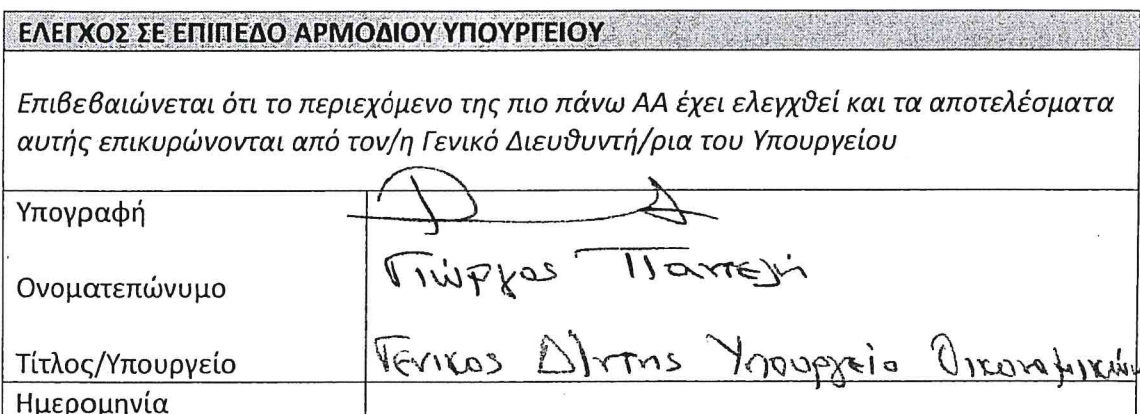 ΕΛΕΓΧΟΣ ΣΕ ΕΠΙΠΕΔΟ ΑΡΜΟΔΙΟΥ ΥΠΟΥΡΓΕΙΟΥ
Επιβεβαιώνεται ότι το περιεχόμενο της πιο πάνω ΑΑ έχει ελεγχθεί και τα αποτελέσματα
αυτής επικυρώνονται από τον/η Γενικό Διευθυντή/ρια του Υπουργείου
Υπογραφή
Ονοματεπώνυμο Γιώργος Παντελή
Τίτλος/Υπουργείο Γενικος Δ/ντης Υπουργείο Οικονομικών
Ημερομηνία